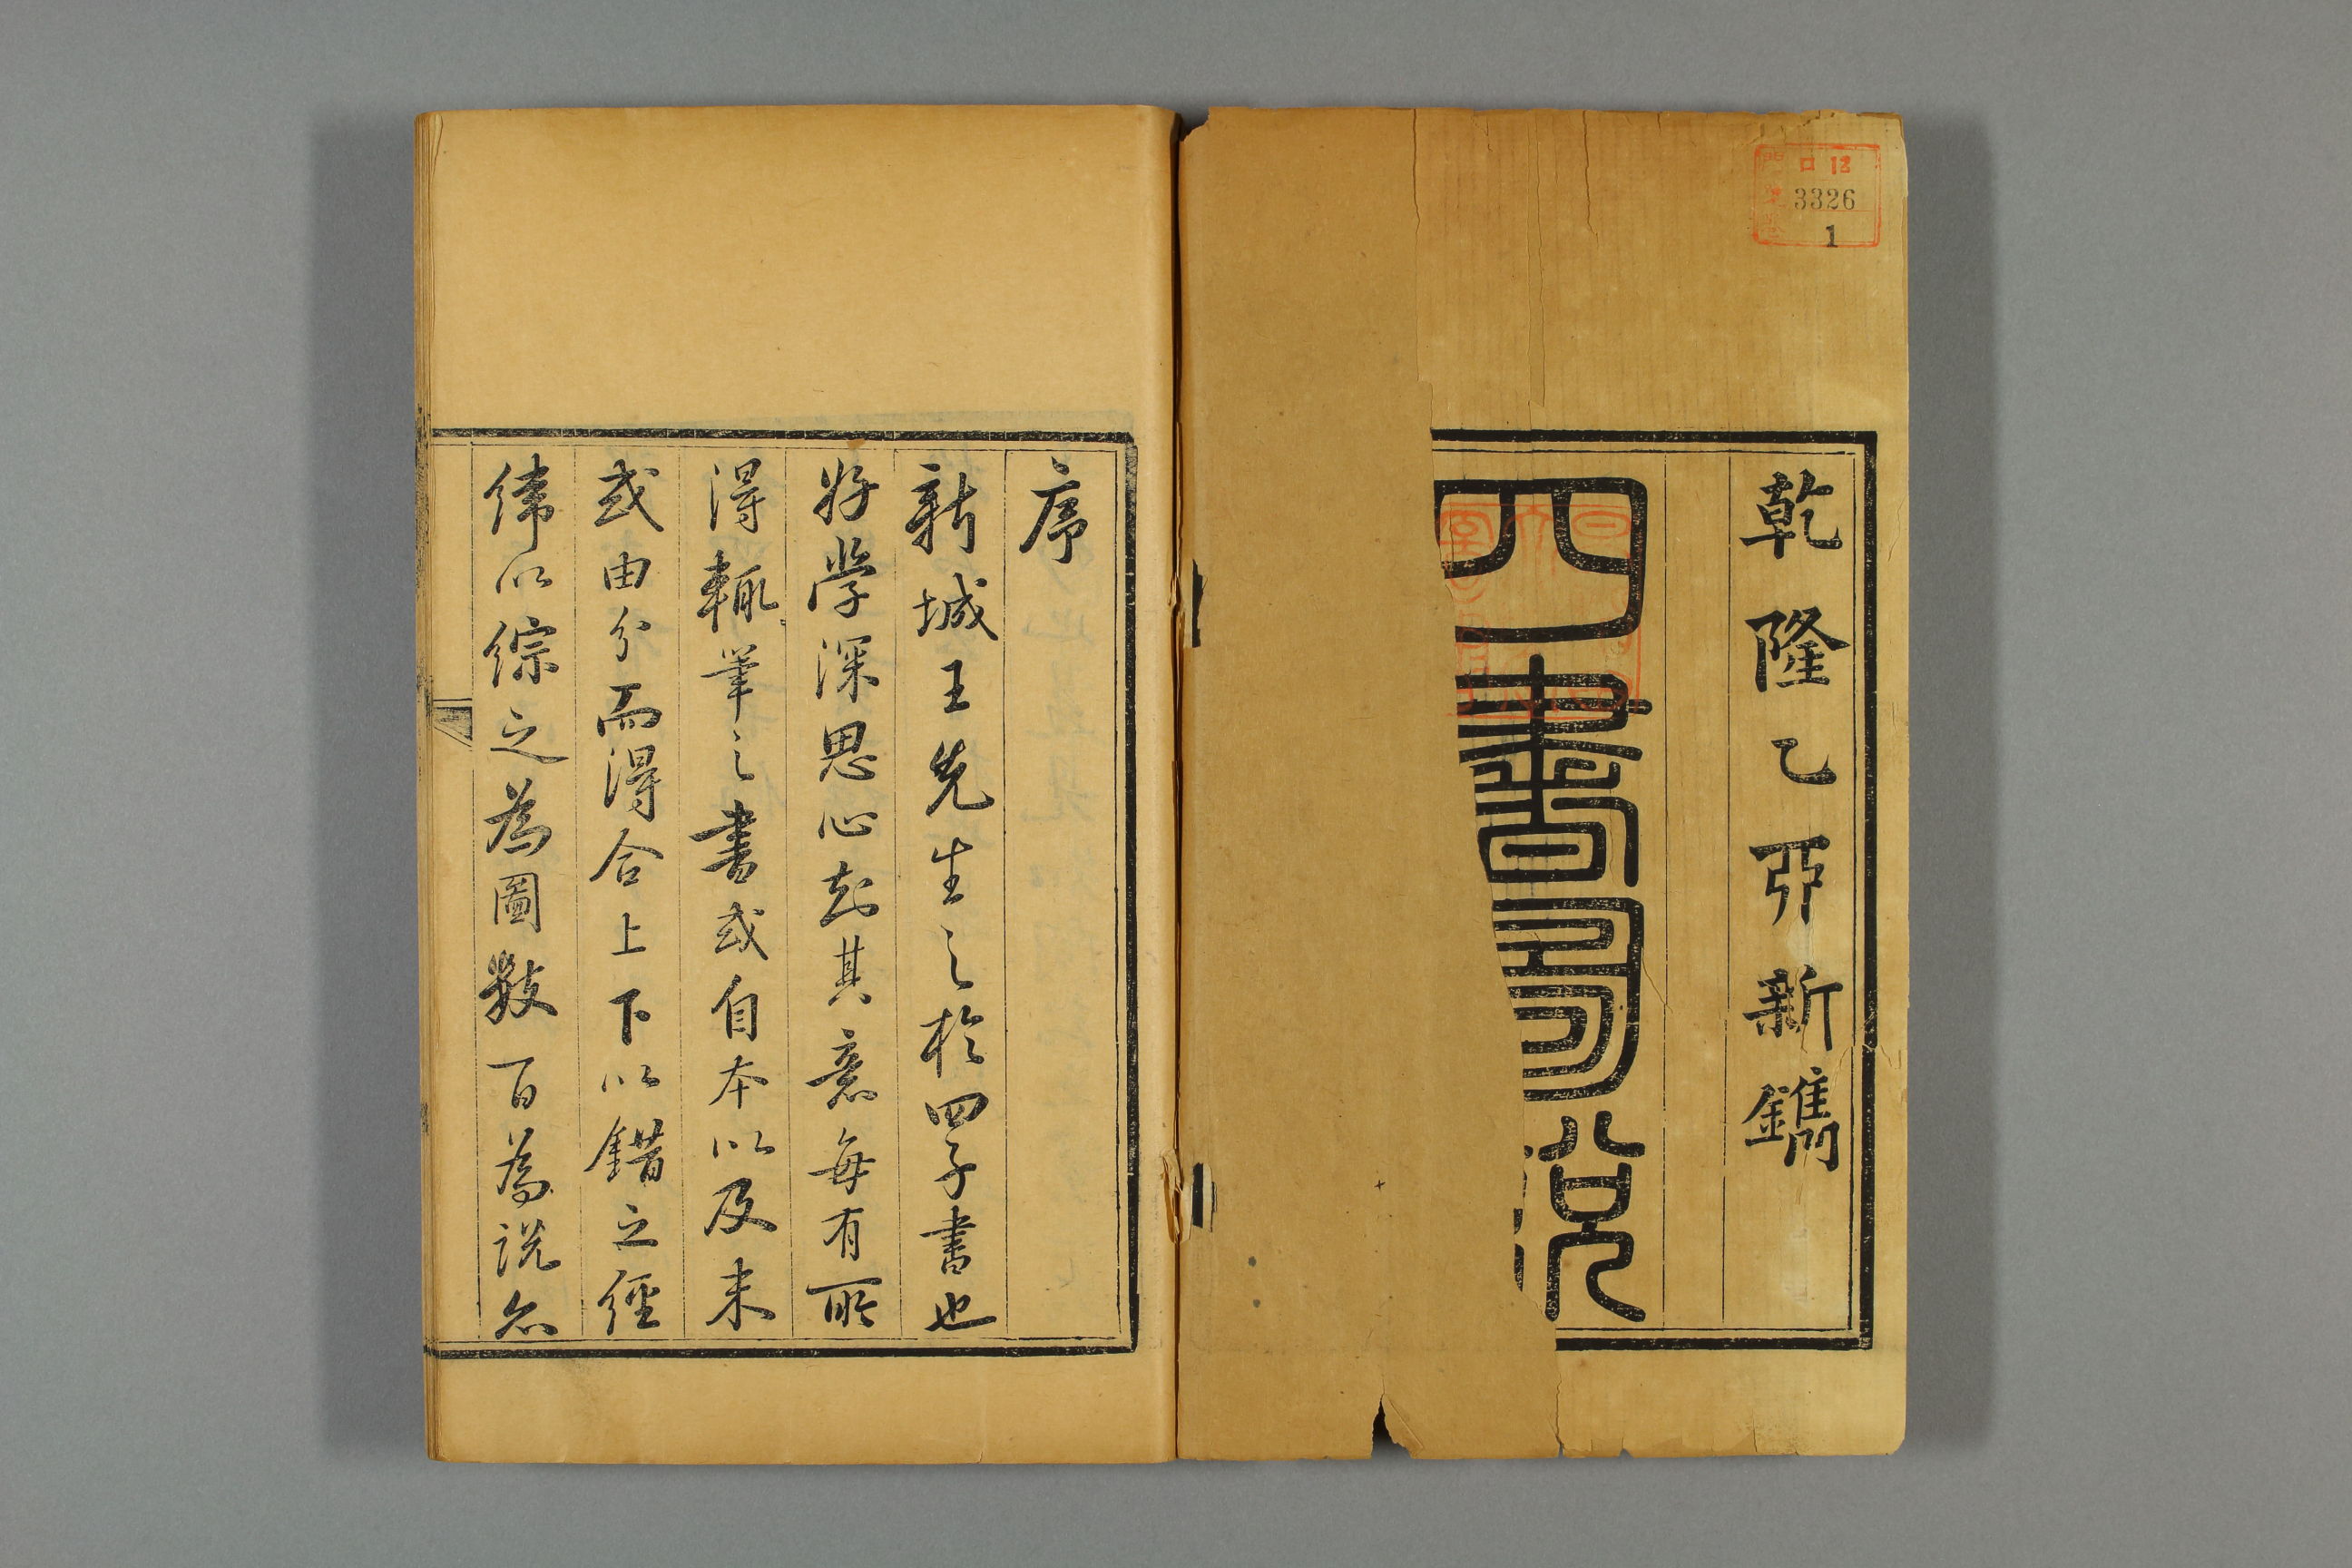 口 12
3326
1
乾隆乙丣新鐫
四書說
序
新城王先生之於四子書也
好學深思心知其意每有所
得輒筆之書或自本以及末
或由分而得合上下以錯之經
緯以綜之為圖數百為説亦